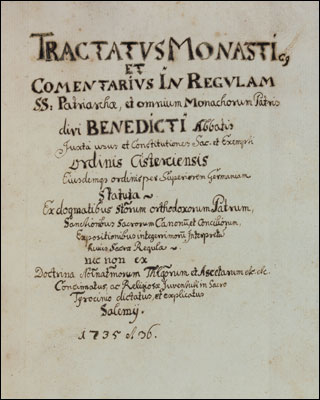 TRACTATUS MONASTIC9
ET
COMENTARIUS IN REGULAM
SS: Patriarchæ, et omnium Monachorum Patris
divi BENEDICTI Abbatis
Juxta usus et Constitutiones Sac. et Exempti
Ordinis Cisterciensis
Eiusdemq ordinis per Superiorem Germaniam
Statuta ~
Ex dogmatibus Storum orthodoxorum Patrum,
Sanctionibus Sacrorum Canonum et Conciliorum,
Expositionibus integerrimorum Interpretū
huius Sacræ Regulæ ~
nec non ex
Doctrina Mgrorum et Ascetarum etc. etc.
Concinnatus, ac Religiosæ Juventuti in Sacro
Tyrocinio dictatus, et explicatus
Salemy.
1735 et 36.